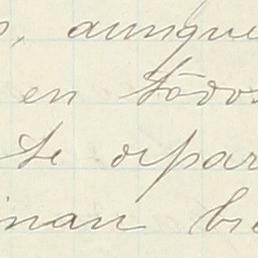 , aunque
en todos
te depar
inan bie